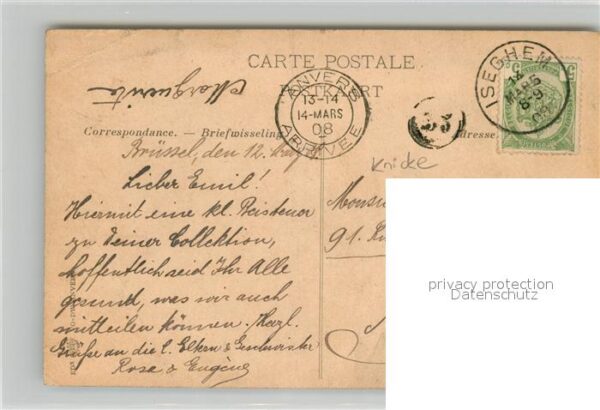 CARTE POSTALE
POSTKAART
Marguerite
ANVERS
13-14
14-MARS
08
ARRIVÉE
ISEGHEM
13
MARS
8-9
08
53
Correspondance. — Briefwisseling
Adresse.
Knicke
Brüssel, den 12.
Lieber Emil!
Hiermit eine kl. Beisteuer
zu Deiner Collektion,
hoffentlich seid Ihr Alle
gesund, was wir auch
mitteilen können. Herzl.
Grüße an die l. Eltern & Geschwister
Rosa & Eugène
91.
privacy protection
Datenschutz